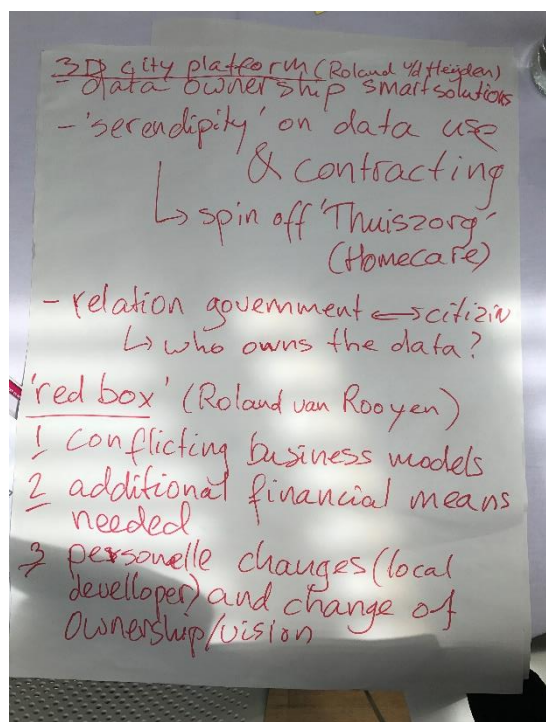 3D city platform (Roland v/d Heijden)
- data ownership smart solutions
- 'serendipity' on data use
& contracting
↳ spin off 'Thuiszorg'
(Homecare)
- relation government ↔ citizin
↳ who owns the data?
'red box' (Roland van Rooyen)
1 conflicting business models
2 additional financial means
needed
3 personelle changes (local
develloper) and change of
ownership/vision